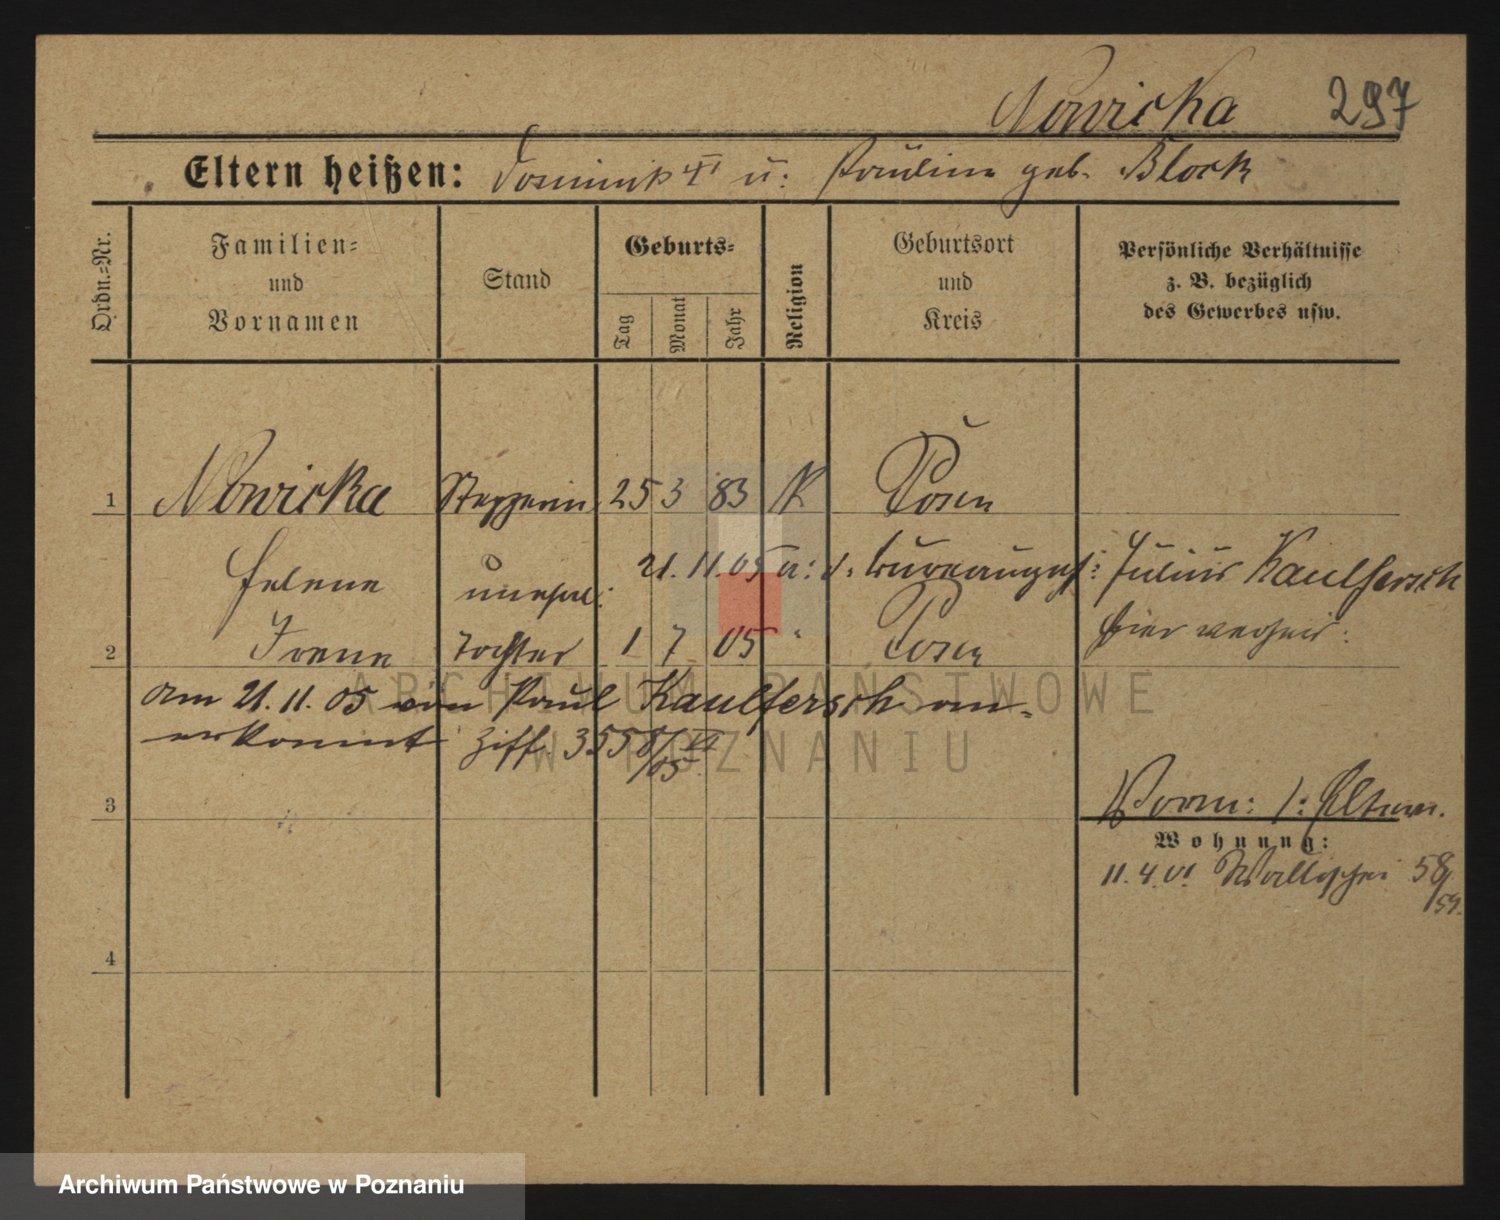 Nowicka 297
Eltern heißen: Dominik † u: Pauline geb. Block
Ordn.=Nr.
Familien=
und
Vornamen
Stand
Geburts=
Tag
Monat
Jahr
Religion
Geburtsort
und
Kreis
Persönliche Verhältnisse
z. B. bezüglich
des Gewerbes usw.
1 Nowicka Stepperin 25 3 83 K Posen
Helene unehel: 21. 11. 05 u: d. Julius Kaulfersch
hier verheir:
2 Irene Tochter 1 7 05 " Posen
am 21. 11. 05 von Paul Kaulfersch an=
erkannt Ziff. 3558/XI
/05.
3
Vorm: 1: Eltern.
Wohnung:
11. 4. 01 Wallischei 58/
59.
4
ARCHIWUM PAŃSTWOWE
W POZNANIU
Archiwum Państwowe w Poznaniu